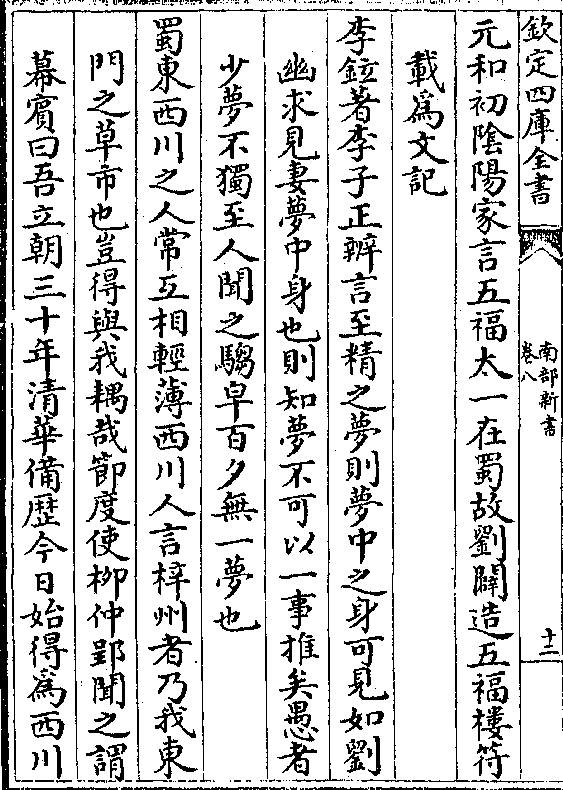 欽定四庫全書
南部新書
卷八
十二
元和初陰陽家言五福太一在蜀故劉闢造五福樓符
載爲文記
李鉉著李子正辨言至精之夢則夢中之身可見如劉
幽求見妻夢中身也則知夢不可以一事推矣愚者
少夢不獨至人聞之騶皁百夕無一夢也
蜀東西川之人常互相輕薄西川人言梓州者乃我東
門之草市也豈得與我耦哉節度使柳仲郢聞之謂
幕賓曰吾立朝三十年清華備歷今日始得爲西川